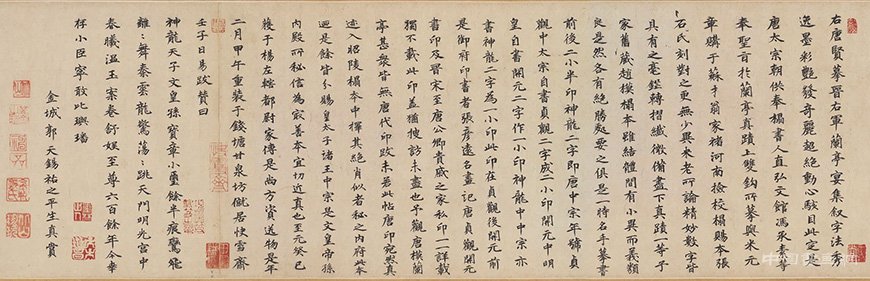 右唐賢摹晉右軍蘭亭宴集叙字法秀
逸墨彩豔發奇麗超絕動心駭目此定是
唐太宗朝供奉榻書人直弘文館馮承素等
奉聖旨於蘭亭真蹟上雙鈎所摹與米元
章購于蘇才翁家褚河南檢校榻賜本張
石氏刻對之更無少異米老所論精妙數字皆
具有之毫鋩轉摺纖微備盡下真蹟一等予
家舊藏趙模榻本雖結體間有小異而義類
良是然各有絕勝處要之俱是一時名手摹書
前後二小半印神龍二字即唐中宗年號貞
觀中太宗自書貞觀二字成二小印開元中明
皇自書開元二字作一小印神龍中中宗亦
書神龍二字為一小印此印在貞觀後開元前
是御府印書者張彥遠名畫記唐貞觀開元
書印及晉宋至唐公卿貴戚之家私印一一詳載
獨不載此印盖猶搜訪未盡也予觀唐模蘭
亭甚眾皆無唐代印跋未若此帖唐印宛然真
迹入昭陵榻本中擇其絕肖似者秘之内府此本
迺是餘皆分賜皇太子諸王中宗是文皇帝孫
内殿所秘信為最善本宜切近真也至元癸巳
獲于楊左轄都尉家傳是尚方資送物是年
二月甲午重裝于錢塘甘泉坊僦居快雪齋
壬子日易跋贊曰
神龍天子文皇孫寶章小璽餘半痕驚飛
離〻舞秦雲龍驚蕩〻跳天門明光宮中
春曦溫玉案卷舒娱至尊六百餘年今幸
存小臣寧敢比璵璠
金城郭天錫祐之平生真賞